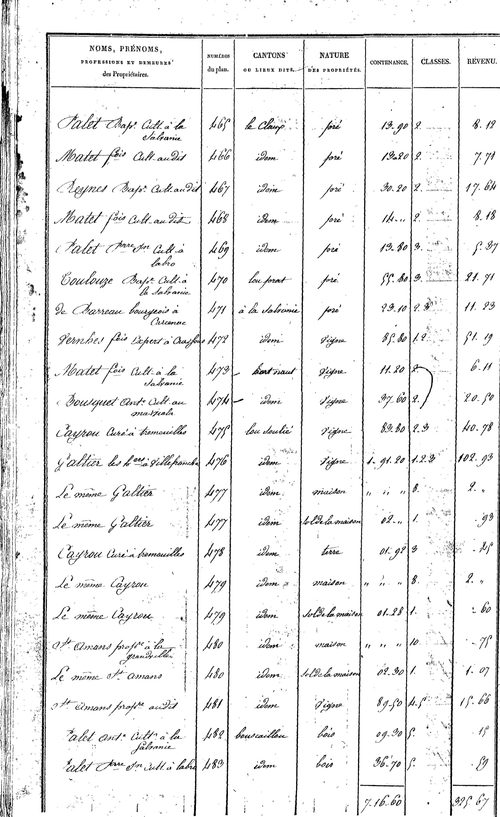 NOMS, PRÉNOMS, PROFESSIONS ET DEMEURES des Propriétaires. NUMÉROS du plan. CANTONS OU LIEUX DITS. NATURE DES PROPRIÉTÉS. CONTENANCE. CLASSES. REVENU.
Falet Bapt. Cult. à la Salvanie 465 le Claux pré 13.90 2 8.12
Matet fois Cult. audit 466 idem pré 13.20 2 7.71
Reynes Bapt. Cult. audit 467 idem pré 30.20 2 17.64
Matet fois Cult. audit 468 idem pré 14.„ 2 8.18
Falet Pierre Jn Cult. à labro 469 idem pré 13.80 3 5.37
Toulouze Bapt. Cult. à la Salvanie 470 lou prat pré 55.80 3 21.71
de Barreau bourgeois à Carcenac 471 à la Salvanie pré 23.10 2.3 11.23
Vernhes fois Expert à 472 idem vigne 85.80 1.2 51.19
Matet fois Cult. à la Salvanie 473 vigne 11.20 2 6.11
Bousquet Ant. Cult. au 474 idem vigne 37.60 2 20.50
Cayrou Curé à tremouilles 475 lou Soulié vigne 83.80 2.3 40.78
Galtier les hers à Villefranche 476 idem vigne 1.91.20 1.2.3 102.93
Le même Galtier 477 idem maison „ „ „ 8 2.„
Le même Galtier 477 idem sol de la maison 02.„ 1 .93
Cayrou Curé à tremouilles 478 idem terre 01.92 3 .25
Le même Cayrou 479 idem maison „ „ „ 8 2.„
Le même Cayrou 479 idem sol de la maison 01.28 1 .60
St Amans propre à la grandville 480 idem maison „ „ „ 10 .75
Le même St Amans 480 idem sol de la maison 02.30 1 1.07
St Amans propre audit 481 idem vigne 89.50 4.5 15.66
Falet Ant. Cult. à la Salvanie 482 bouscaillou bois 09.30 5 .15
Falet Pierre Jn Cult. à labro 483 idem bois 36.70 5 .59
7.16.60 325.67